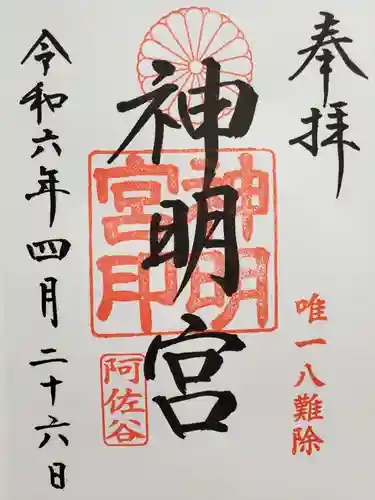 奉拝
唯一八難除
神明宮
神明宮印
阿佐谷
令和六年四月二十六日